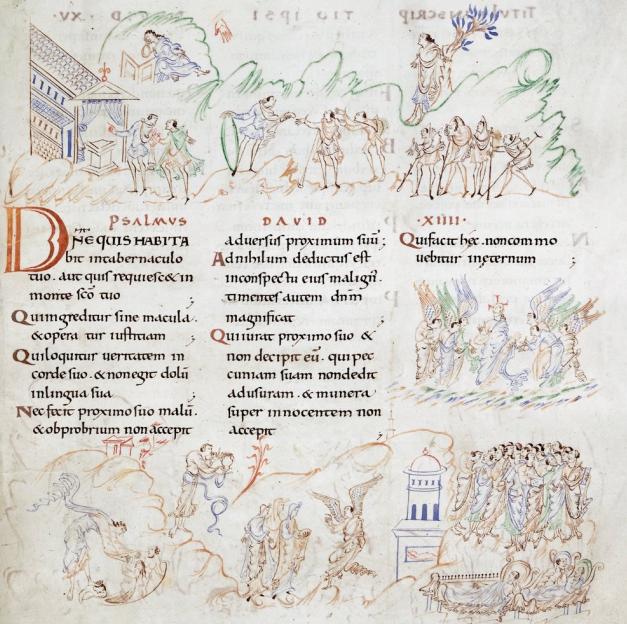 PSALMVS DAVID ·XIIII·
DNE QUIS HABITA
bit in tabernaculo
tuo · aut quis requiescet in
monte sco tuo
Qui ingreditur sine macula ·
& opera tur iustitiam
Qui loquitur ueritatem in
corde suo · & non egit dolū
in lingua sua
Nec fecit proximo suo malū ·
& obprobrium non accepit
aduersus proximum suū ;
Ad nihilum deductus est
in conspectu eius malign ·
timentes autem dnm
magnificat
Qui iurat proximo suo &
non decipit eū · qui pec
cuniam suam non dedit
ad usuram · & munera
super innocentem non
accepit ;
Qui facit hec · non commo
uebitur in eternum ;